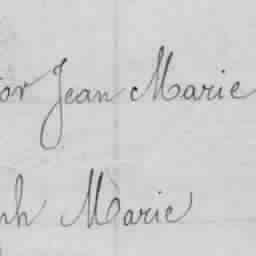 or Jean Marie
ph Marie